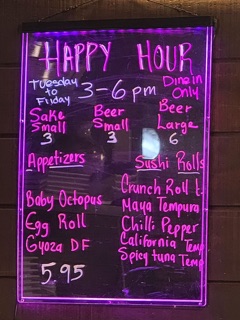 HAPPY HOUR
Tuesday to Friday
3-6 pm
Dine in Only
Sake Small
3
Beer Small
3
Beer Large
6
Appetizers
Baby Octopus
Egg Roll
Gyoza DF
5.95
Sushi Rolls
Crunch Roll t.
Maya Tempura
Chilli Pepper
California Temp
Spicy tuna Temp